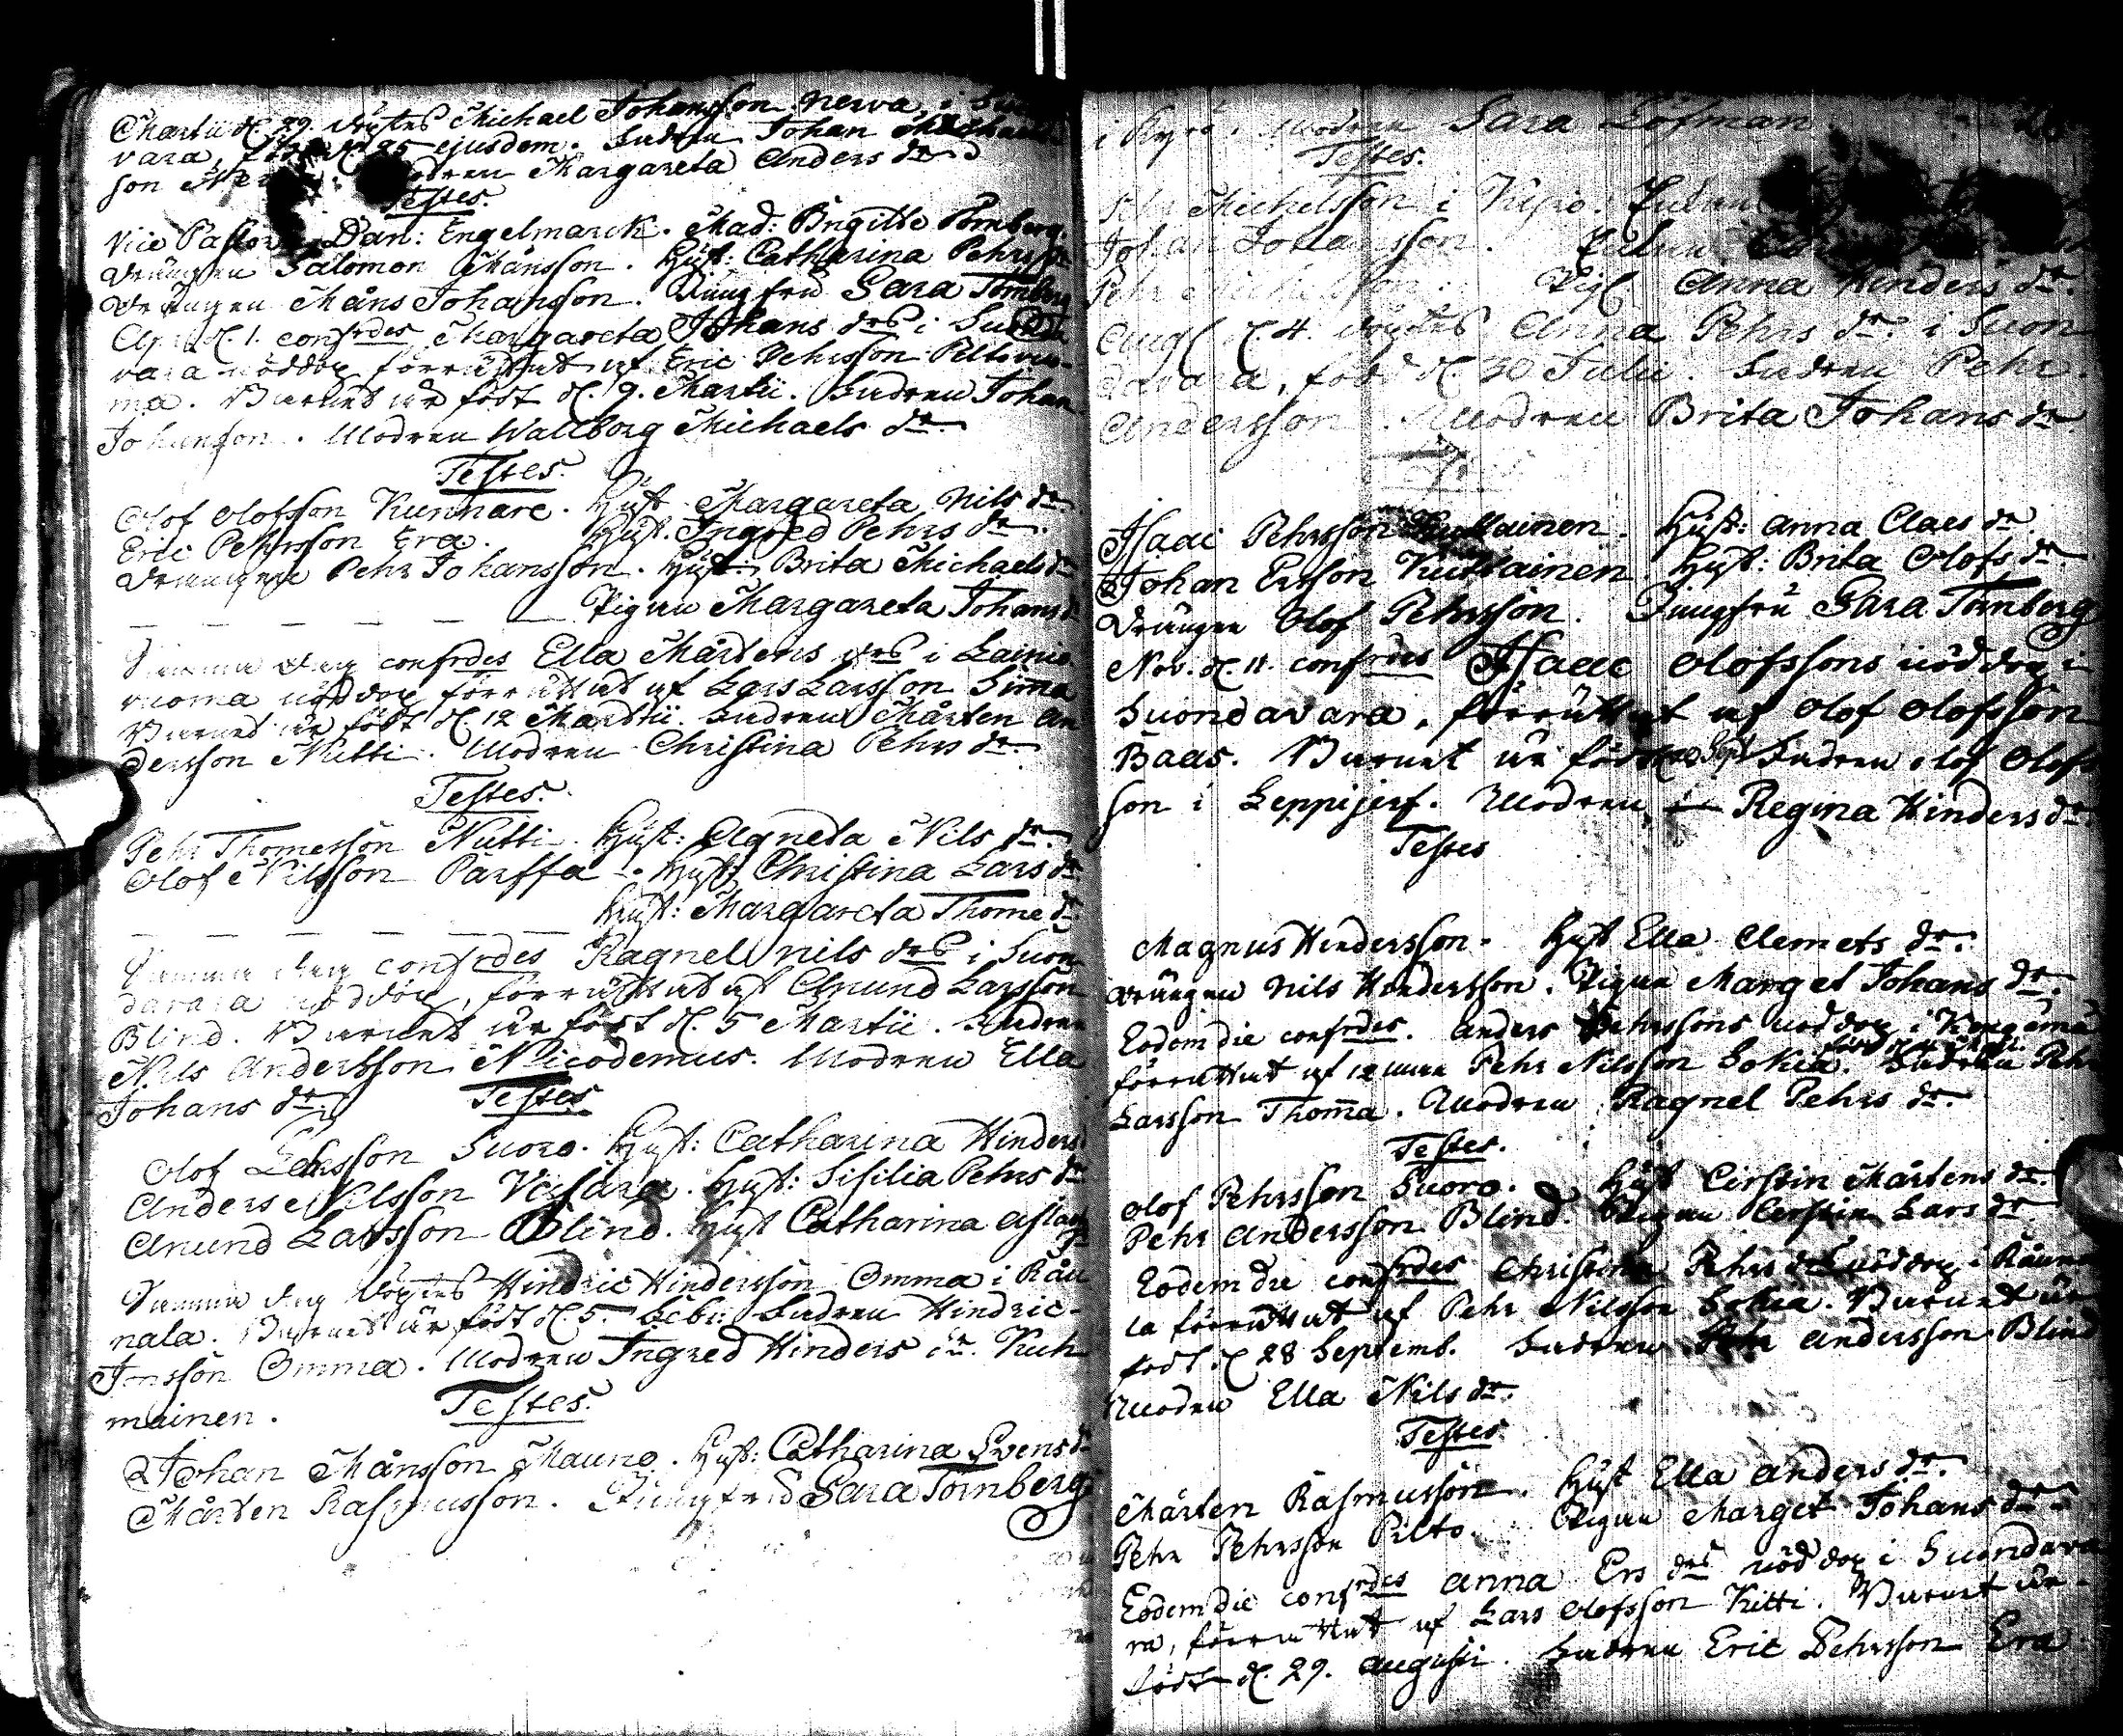 Martii d. 29. döptes Michael Johansson Nerva, i Suon
vara, född d. 25 ejusdem. Fadren Johan Michaels
son Ner Modren Margareta Anders dr.
Testes.
Vice Pastor Dan: Engelmarck. Mad: Brigitta Tornberg.
Drängen Salomon Månsson. Hust: Catharina Pehrs dr
Drängen Måns Johansson. Jungfru Sara Tornberg
Apr. d. 1. confrdes Margareta Johans drs i Suonda
vara nöddop förrättat af Eric Pehrsson Piltovuo-
ma. Barnet är födt d. 9. Martii. Fadren Johan
Johansson. Modren Wallborg Michaels dr.
Testes.
Olof Olofsson Kunnare. Hust. Margareta Nils dr.
Eric Pehrsson Era. Hust. Ingred Pehrs dr.
Drängen Pehr Johansson. Hust: Brita Michaels dr
— — — — — Pigan Margareta Johans d.
Samma dag confrdes Ella Mårtens drs i Lainio
vuoma nöddop förrättat af Lars Larsson Simma
Barnet är födt d. 12 Martii. Fadren Mårten An
dersson Nutti. Modren Christina Pehrs dr.
Testes.
Pehr Thomesson Nutti. Hust: Agneta Nils dr.
Olof Nilsson Parffa. Hust Christina Lars dr
— — — — — Hust: Margareta Thome dr.
Samma dag confrdes Ragnel Nils drs i Suon
davara nöddop, förrättat af Anund Larsson
Blind. Barnet är födt d. 5 Martii. Fadren
Nils Andersson Nicodemus. Modren Ella
Johans dr. Testes
Olof Larsson Suoro. Hust: Catharina Hinders
Anders Nilsson Vasara. Hust: Sisilia Pehrs dr
Anund Larsson Blind. Hust Catharina Aslacs
dr
Samma dag döptes Hindric Hindersson Omma i Rau
nala. Barnet är födt d. 5. Febr: Fadren Hindric
Jonsson Omma. Modren Ingred Hinders dr. Kuh
mainen. Testes.
Johan Månsson Mauno. Hust: Catharina Svens d.
Mårten Rasmusson. Jungfru Sara Tornberg
i Kyrö. Modren Sara Löfman
Testes.
Pehr Michelsson i Kyrö. Pigan
Johan Johansson. Pigan
Pehr Michelsson. Pig: Anna Hinders dr.
Aug. d. 4. döptes Anna Pehrs dr. i Suon
davara, född d. 30 Julii. Fadren Pehr
Andersson. Modren Brita Johans dr
Isaac Pehrsson Kuttainen. Hust: Anna Claes dr.
Johan Ersson Kuttainen. Hust: Brita Olofs dr.
Drängen Olof Pehrsson. Jungfru Sara Tornberg
Nov. d. 11. confrdes Isaac Olofssons nöddop i
Suondavara, förrättat af Olof Olofsson
Baas. Barnet är födt Sept Fadren Olof Olofs
son i Leppijerf. Modren Regina Hinders dr.
Testes
Magnus Hindersson. Hust Ella Clemets dr.
Drängen Nils Hindersson. Pigan Marget Johans dr.
Eodem die confrdes. Anders Pehrssons nöddop i Kengämä
förrättat af Pehr Nilsson Sokia. Fadren Pehr
Larsson Thomma. Modren Ragnel Pehrs dr.
Testes.
Olof Pehrsson Suoro. Hust Cirstin Mårtens dr.
Pehr Andersson Blind. Pigan Cerstin Lars dr.
Eodem die confrdes Christina Pehrs drs nöddop i Rauna
la förrättat af Pehr Nilsson Sokia. Barnet är
födt d. 28 Septemb. Fadren Pehr Andersson Blind
Modren Ella Nils dr.
Testes
Mårten Rasmusson. Hust Ella Anders dr.
Pehr Pehrsson Pilto. Pigan Marget Johans dr.
Eodem die confrdes Anna Ers drs nöddop i Suondava
ra, förrättat af Lars Olofsson Kitti. Barnet är
födt d. 29. Augusti. Fadren Eric Pehrsson Era.